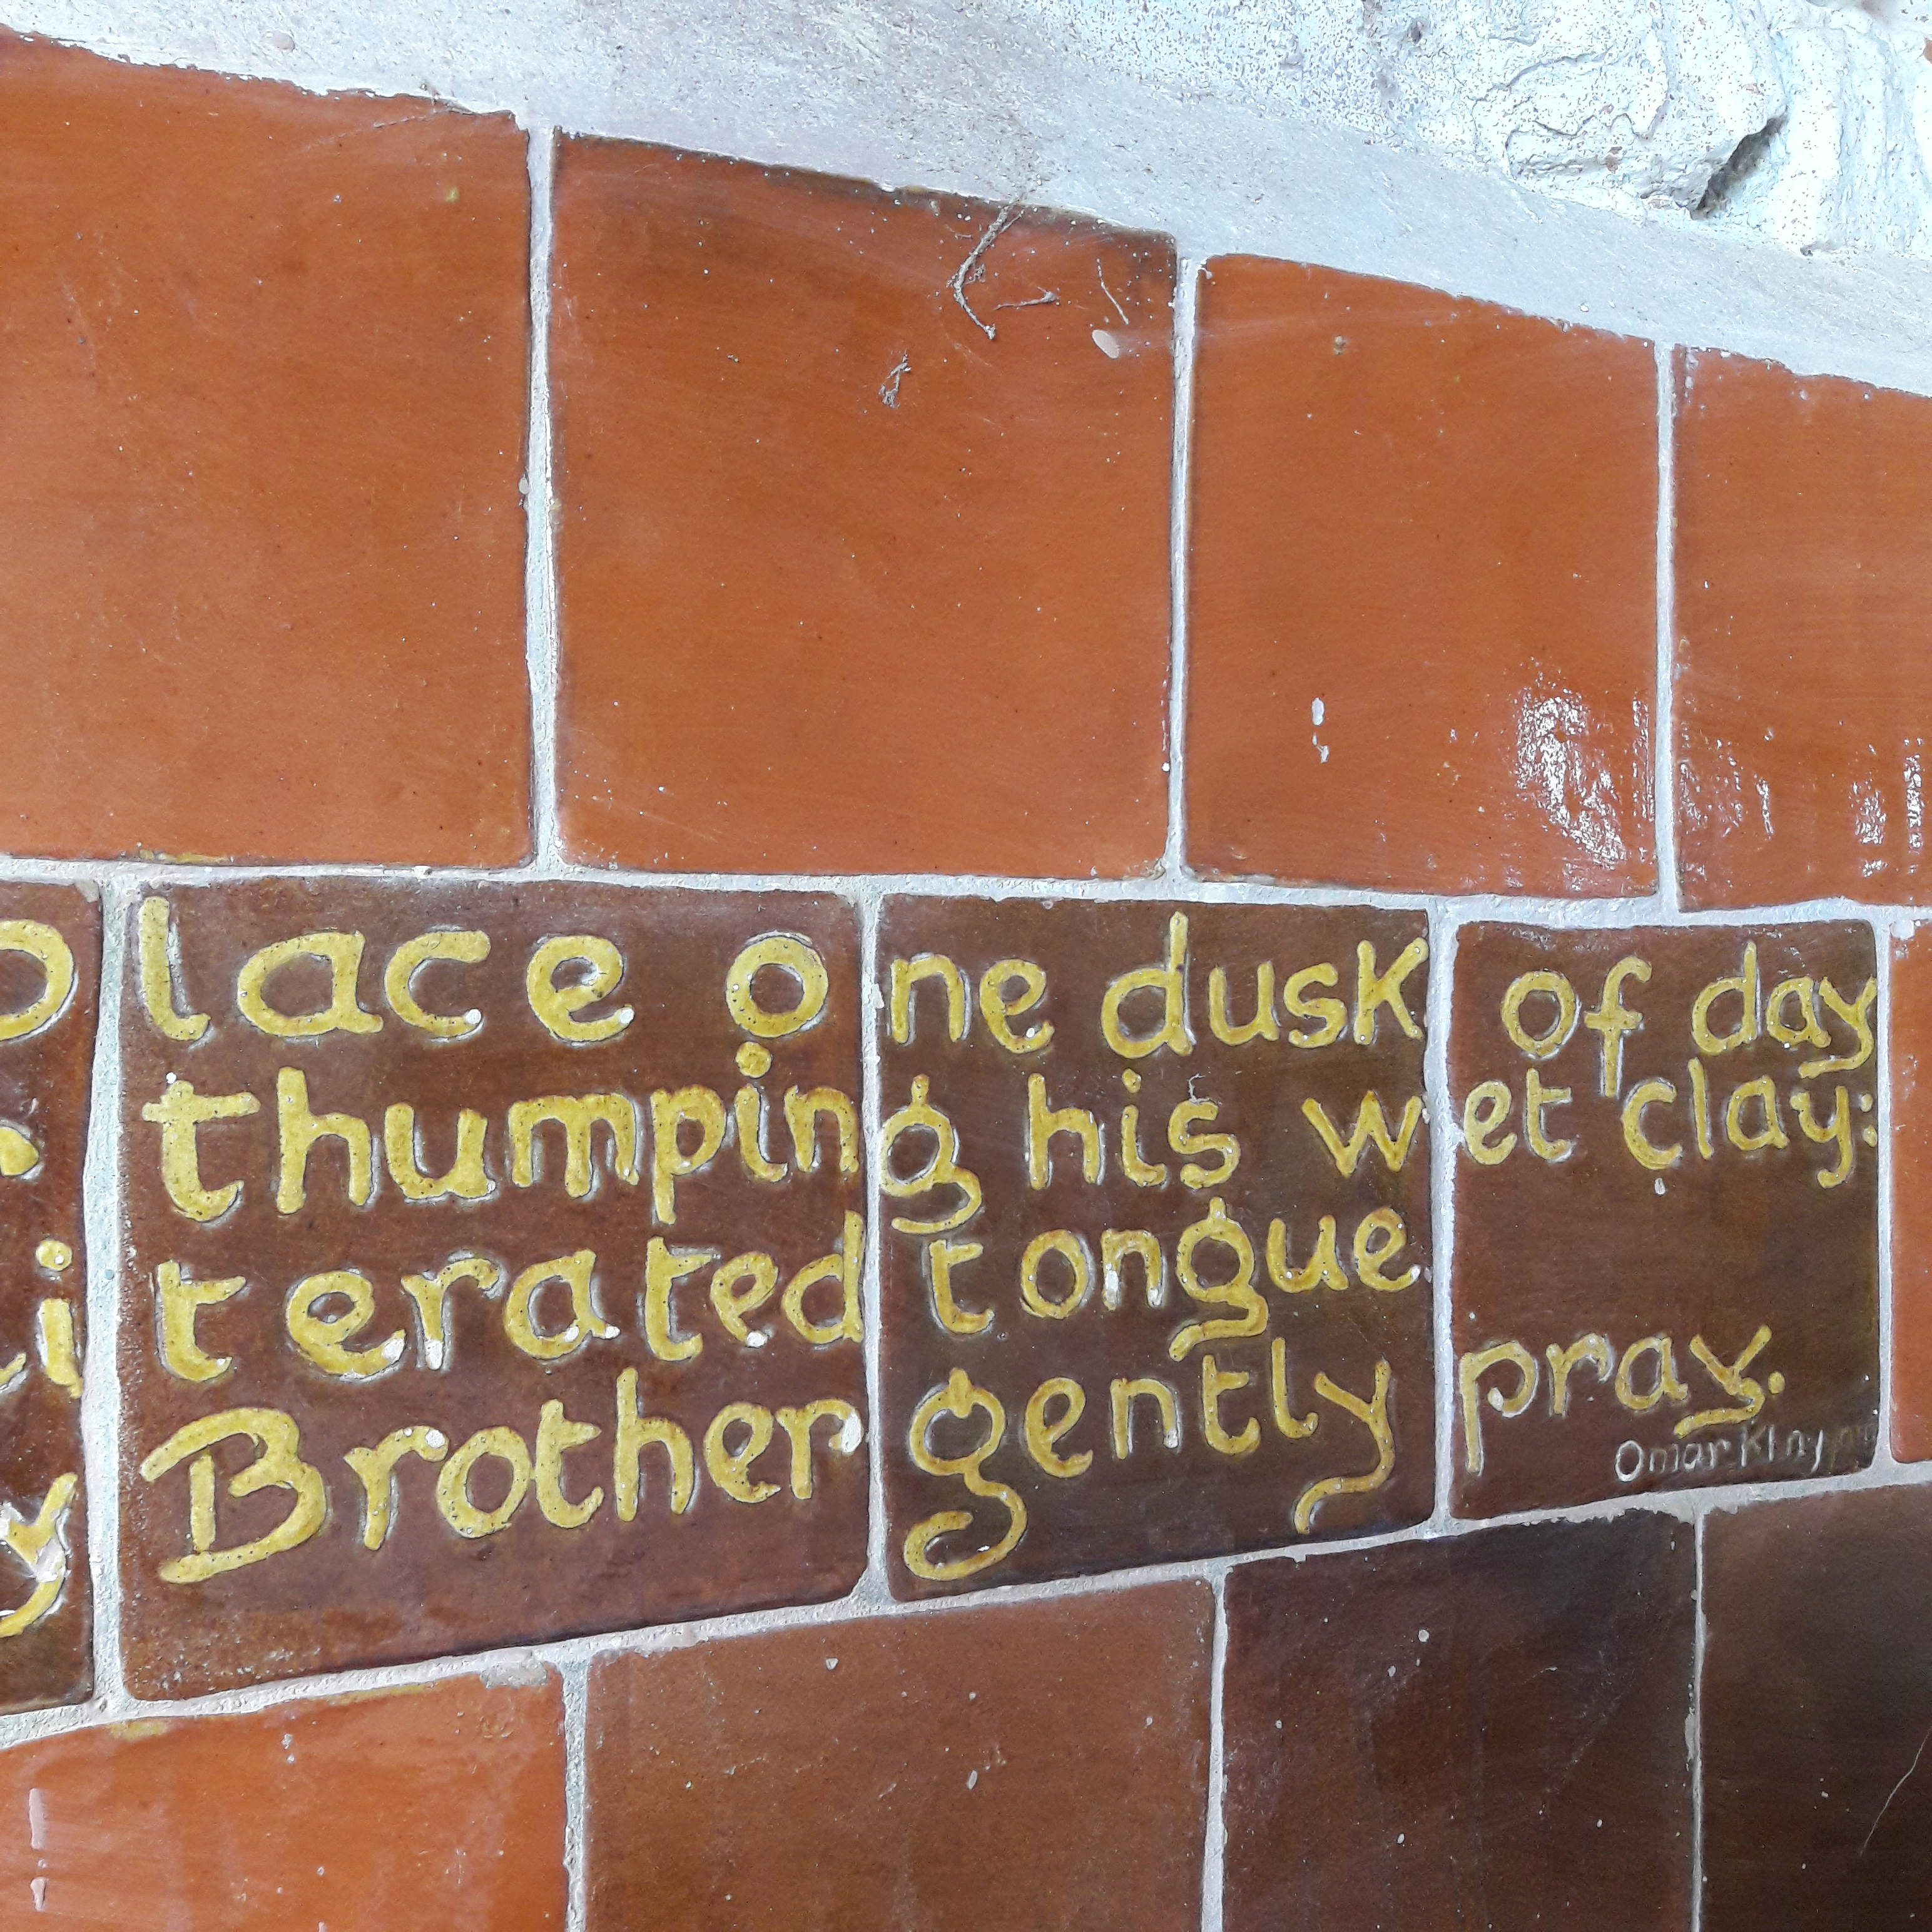 place one dusk of day
thumping his wet clay:
iterated tongue
y Brother gently pray.